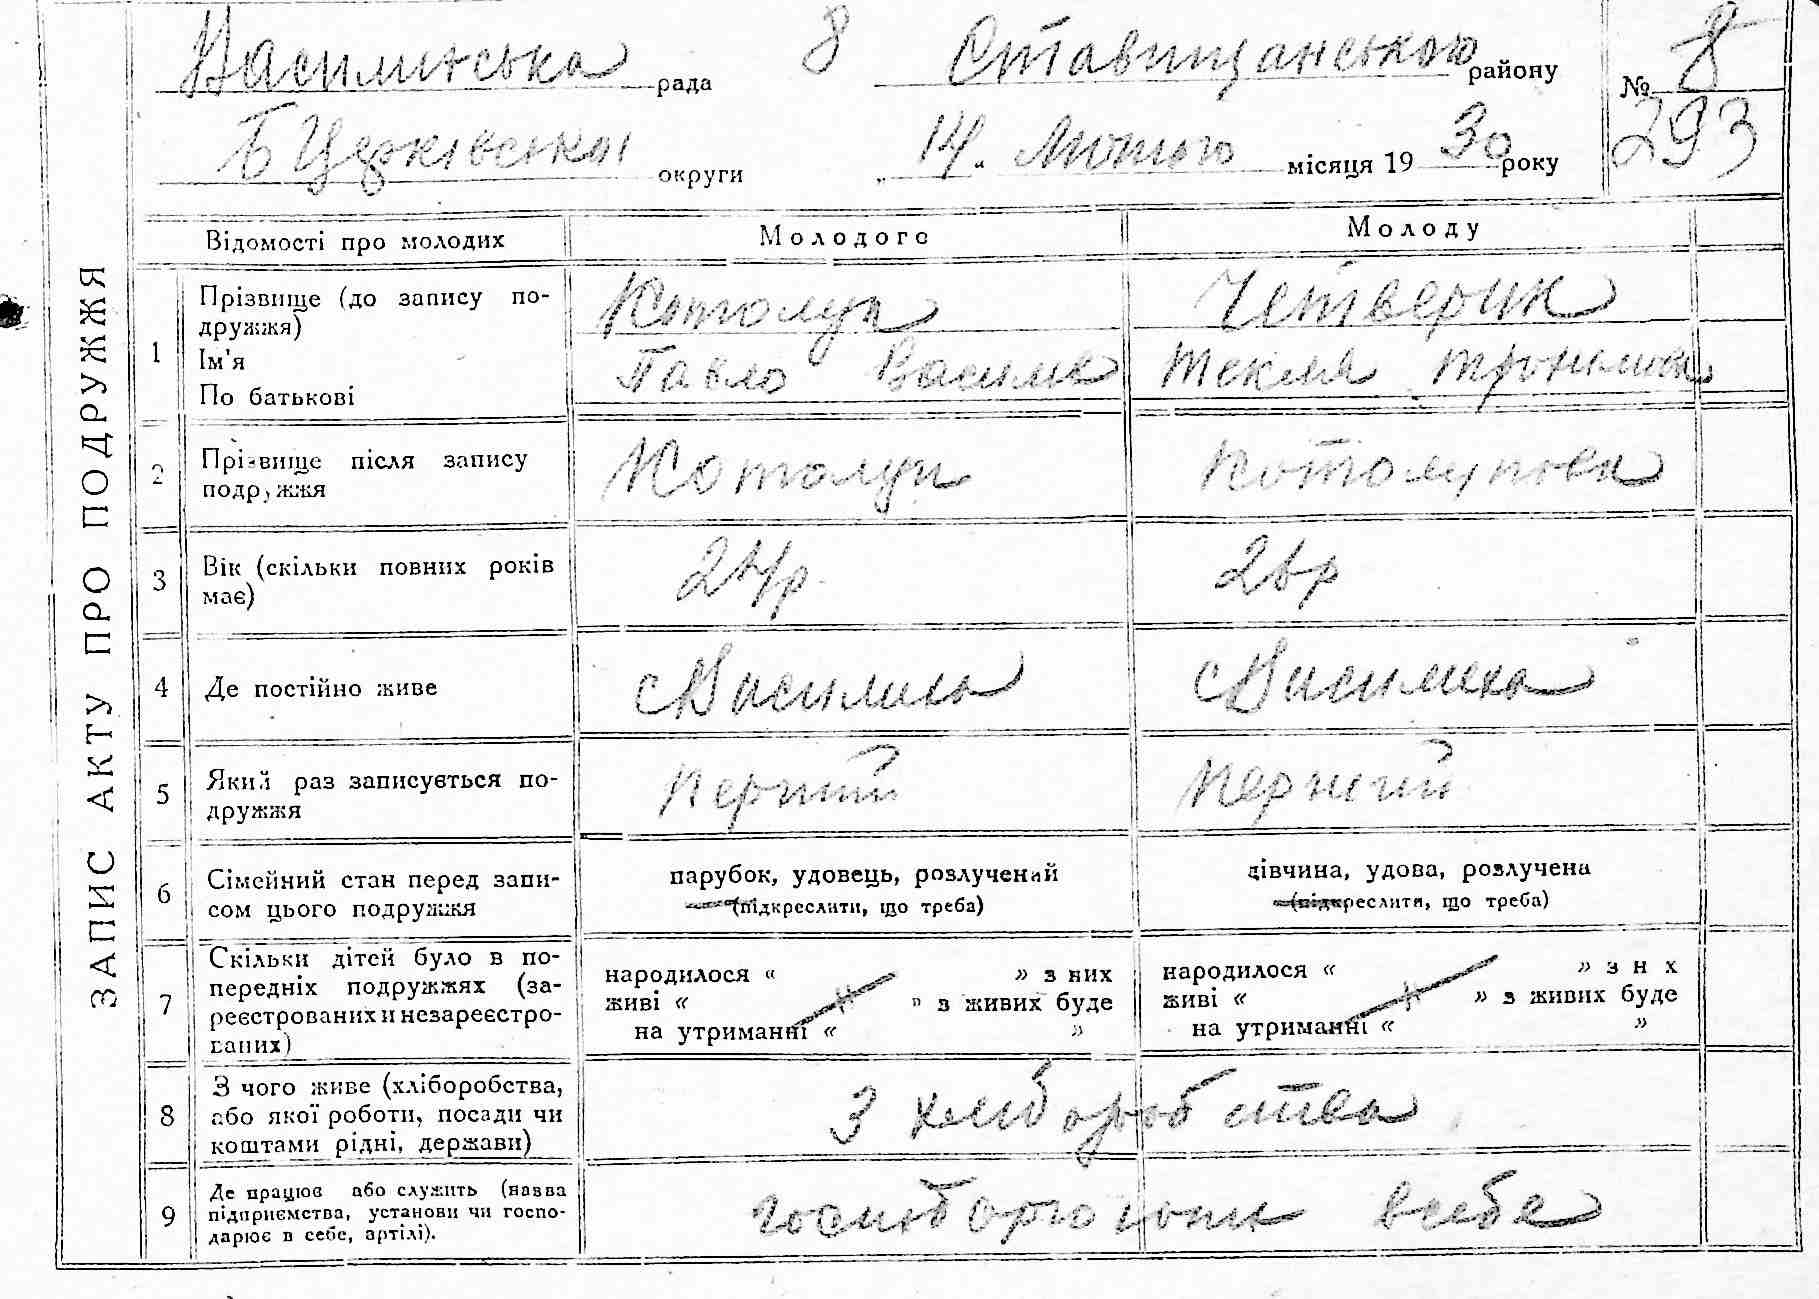 Василиська рада 8 Ставищанською району № 8
Б Церківської округи „14„ Лютого місяця 1930 року 293
ЗАПИС АКТУ ПРО ПОДРУЖЖЯ
Відомості про молодих Молодого Молоду
1 Прізвище (до запису по-
дружжя)
Ім'я
По батькові
Котолуп
Павло Василів
Четверик
Текля
2 Прізвище після запису
подружжя
Котолуп
Котолупова
3 Вік (скільки повних років
має)
24р
4 Де постійно живе
с Василиха
с Василиха
5 Який раз записується по-
дружжя
Перший
Перший
6 Сімейний стан перед запи-
сом цього подружжя
парубок, удовець, розлучений
(підкреслити, що треба)
дівчина, удова, розлучена
(підкреслити, що треба)
7 Скільки дітей було в по-
передніх подружжях (за-
реєстрованих и незареєстро-
ваних)
народилося « » з них
живі « » з живих буде
на утриманні « »
народилося « » з н х
живі « » з живих буде
на утриманні « »
8 З чого живе (хліборобства,
або якої роботи, посади чи
коштами рідні, держави)
З хлиборобства
9 Де працює або служить (назва
підприємства, установи чи госпо-
дарює в себе, артілі).
всебе